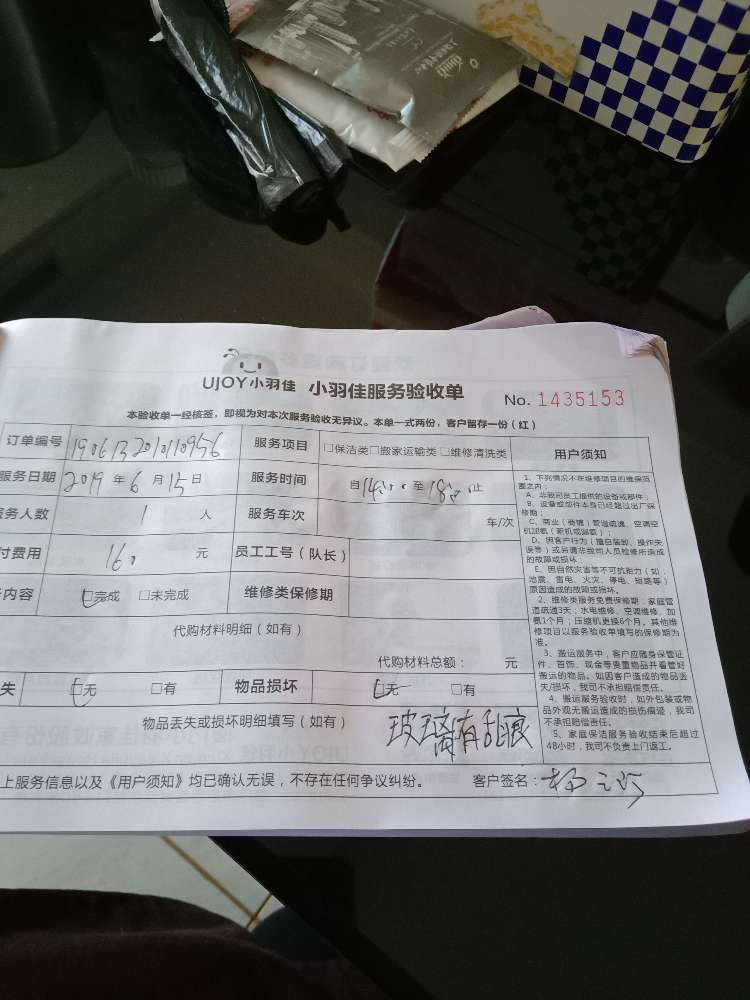 UJOY小羽佳 小羽佳服务验收单 No. 1435153
本验收单一经核签，即视为对本次服务验收无异议。本单一式两份，客户留存一份（红）
订单编号 1906132010110956 服务项目 □保洁类□搬家运输类 □维修清洗类 用户须知
服务日期 2019 年 6 月 15 日 服务时间 自 14:00 至 18:00 止
务人数 1 人 服务车次 车/次
付费用 160 元 员工工号（队长）
内容 □完成 □未完成 维修类保修期
代购材料明细（如有）
代购材料总额： 元
失 □无 □有 物品损坏 □无 □有
物品丢失或损坏明细填写（如有） 玻璃有乱痕
上服务信息以及《用户须知》均已确认无误，不存在任何争议纠纷。 客户签名：
1、下列情况不在维修项目的维保范
围之内：
A、非我司员工提供的设备或部件；
B、设备或部件本身已经超过出厂保
修期；
C、商业（商铺）管道疏通、空调空
机加氨（新机或漏氨）；
D、因客户行为（擅自装卸、操作失
误等）或另请非我司人员检修所造成
的故障或损坏
E、因自然灾害等不可抗拒力（如：
地震、雷电、火灾、停电、短路等）
原因造成的故障或损坏。
2、维修类服务免费保修期：家庭管
道疏通3天；水电维修、空调维修、加
氨1个月；压缩机更换6个月。其他维
修项目以服务验收单填写的保修期为
准。
3、搬运服务中，客户应随身保管证
件、首饰、现金等贵重物品并看管好
搬运的物品。如因客户造成的物品丢
失/损坏，我司不承担赔偿责任。
4、搬运服务验收时，如外包装或物
品外观无搬运造成的损伤痕迹，我司
不承担赔偿责任。
5、家庭保洁服务验收结束后超过
48小时，我司不负责上门返工。